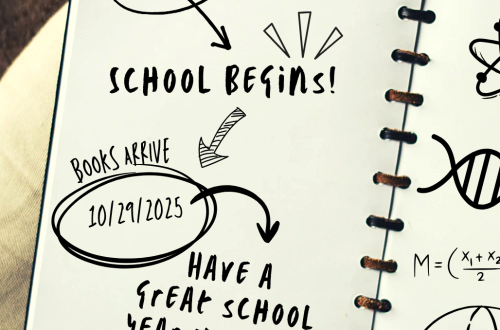 SCHOOL BEGINS!
BOOKS ARRIVE
10/29/2025
HAVE A
GREAT SCHOOL
M=(X₁+X₂
2